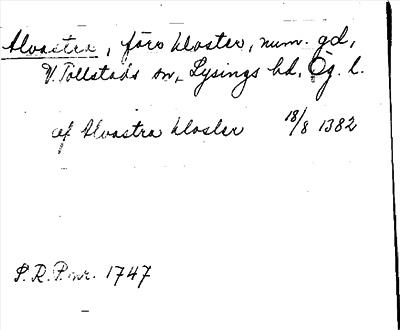 Alvastra, förs kloster, num. gd,
V. Tollstads sn, Lysings hd, Ög. l.
af Alvastra kloster 18/8 1382
S. R. P. nr. 1747